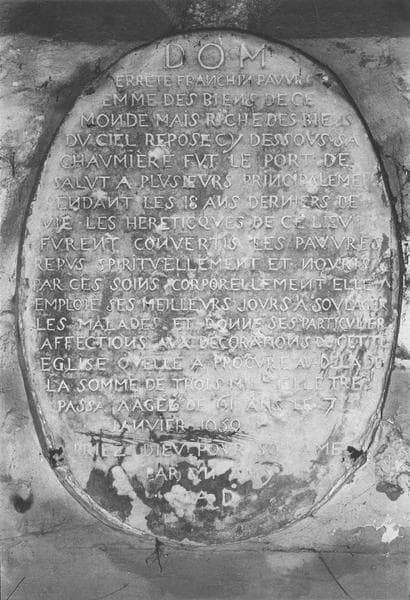 DOM
PERRETE FRANCHIN PAUVRE
FEMME DES BIENS DE CE
MONDE MAIS RICHE DES BIENS
DU CIEL REPOSE CY DESSOUS SA
CHAUMIERE FUT LE PORT DE
SALUT A PLUSIEURS PRINCIPALEMENT
PENDANT LES 18 ANS DERNIERS DE
VIE LES HERETICQUES DE CE LIEU
FURENT CONVERTIS LES PAUVRES
REPUS SPIRITUELLEMENT ET NOURIS
PAR CES SOINS CORPORELLEMENT ELLE A
EMPLOIE SES MEILLEURS JOURS A SOULAGER
LES MALADES ET DONNE SES PARTICULIER
AFFECTIONS AUX DECORATIONS DE CETTE
EGLISE QUELLE A PROCURE AU DELA DE
LA SOMME DE TROIS MIL ELLE TRE
PASSA AAGEE DE 61 ANS LE 7
JANVIER
PRIEZ DIEU POUR SON AME
PAR UN
A D